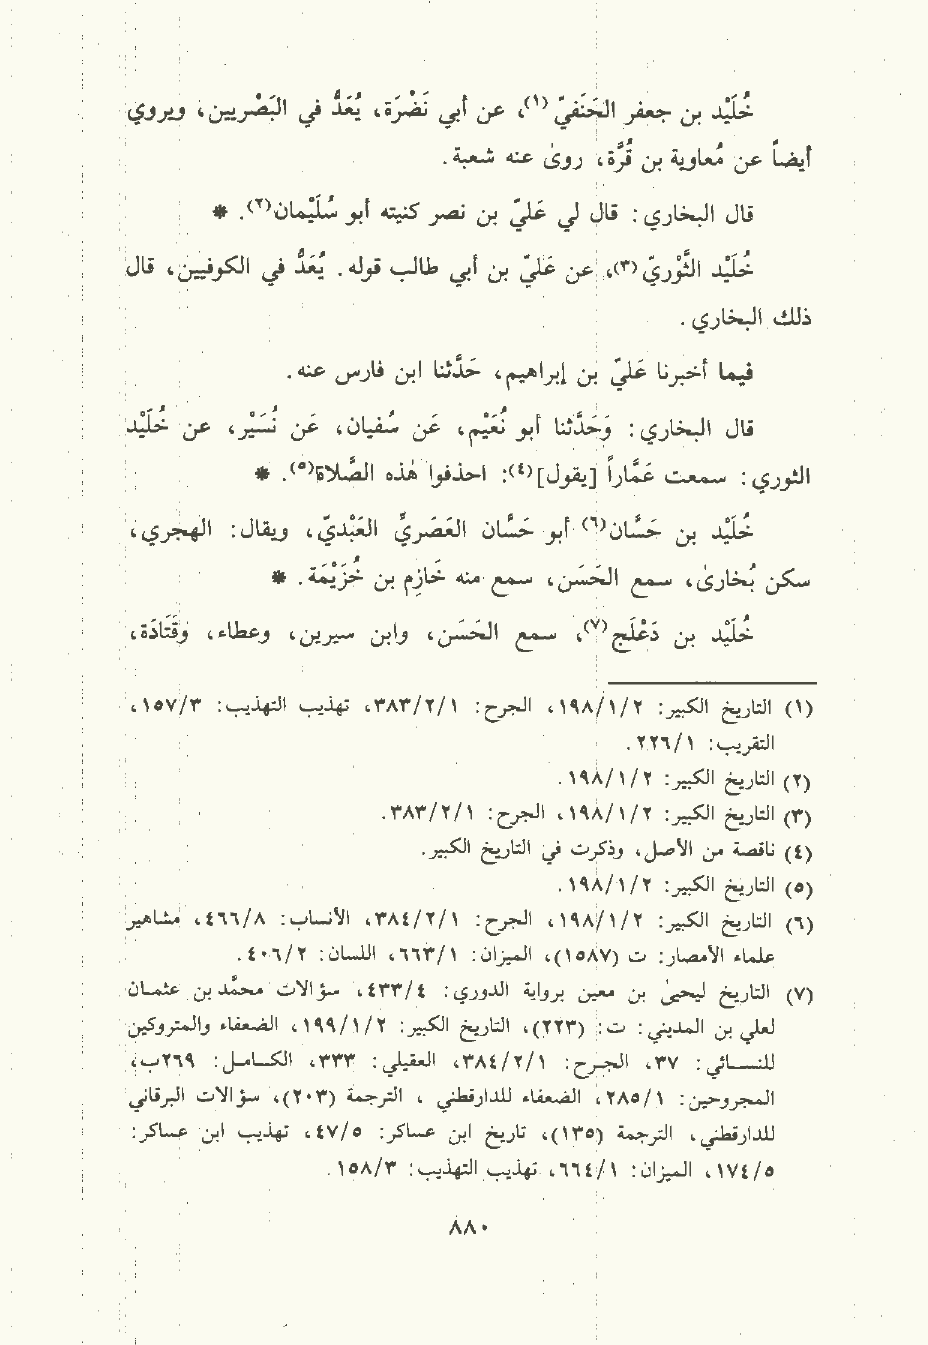 خُلَيْد بن جعفر الحَنَفيّ(١)، عن أبي نَضْرَة، يُعَدُّ في البَصْريين، ويروي
أيضاً عن مُعاوية بن قُرَّة، روىٰ عنه شعبة.
قال البخاري: قال لي عَليّ بن نصر كنيته أبو سُلَيْمان(٢). *
خُلَيْد الثَّوْريّ(٣)، عن عَليّ بن أبي طالب قوله. يُعَدُّ في الكوفيين، قال
ذلك البخاري.
فيما أخبرنا عَليّ بن إبراهيم، حَدَّثنا ابن فارس عنه.
قال البخاري: وَحَدَّثنا أبو نُعَيْم، عَن سُفيان، عَن نُسَيْر، عن خُلَيْد
الثوري: سمعت عَمَّاراً [يقول](٤): احذفوا هٰذه الصَّلاة(٥). *
خُلَيْد بن حَسَّان(٦) أبو حَسَّان العَصَريِّ العَبْديّ، ويقال: الهجري،
سكن بُخارىٰ، سمع الحَسَن، سمع منه خَازِم بن خُزَيْمَة. *
خُلَيْد بن دَعْلَج(٧)، سمع الحَسَن، وابن سيرين، وعطاء، وقَتَادَة،
(١) التاريخ الكبير: ١٩٨/١/٢، الجرح: ٣٨٣/٢/١، تهذيب التهذيب: ١٥٧/٣،
التقريب: ٢٢٦/١.
(٢) التاريخ الكبير: ١٩٨/١/٢.
(٣) التاريخ الكبير: ١٩٨/١/٢، الجرح: ٣٨٣/٢/١.
(٤) ناقصة من الأصل، وذكرت في التاريخ الكبير.
(٥) التاريخ الكبير: ١٩٨/١/٢.
(٦) التاريخ الكبير: ١٩٨/١/٢، الجرح: ٣٨٤/٢/١، الأنساب: ٤٦٦/٨، مشاهير
علماء الأمصار: ت (١٥٨٧)، الميزان: ٦٦٣/١، اللسان: ٤٠٦/٢.
(٧) التاريخ ليحيىٰ بن معين برواية الدوري: ٤٣٣/٤، سؤالات محمَّد بن عثمان
لعلي بن المديني: ت: (٢٢٣)، التاريخ الكبير: ١٩٩/١/٢، الضعفاء والمتروكين
للنسائي: ٣٧، الجرح: ٣٨٤/٢/١، العقيلي: ٣٣٣، الكامل: ٢٦٩ب،
المجروحين: ٢٨٥/١، الضعفاء للدارقطني ، الترجمة (٢٠٣)، سؤالات البرقاني
للدارقطني، الترجمة (١٣٥)، تاريخ ابن عساكر: ٤٧/٥، تهذيب ابن عساكر:
١٧٤/٥، الميزان: ٦٦٤/١، تهذيب التهذيب: ١٥٨/٣.
٨٨٠